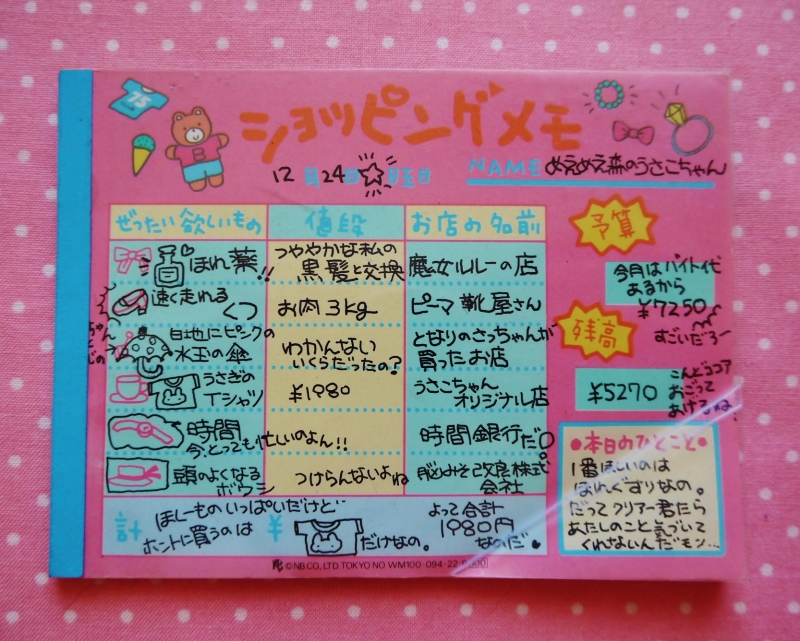 75
ショッピングメモ
12月24日☆曜日
NAME めえめえ森のうさこちゃん
ぜったい欲しいもの 値段 お店の名前
ほれ薬!! つややかな私の黒髪と交換 魔女ルルーの店
速く走れるくつ お肉3kg ピーマ靴屋さん
白地にピンクの水玉の傘 わかんないいくらだったの? となりのさっちゃんが買ったお店
うさぎのTシャツ ¥1980 うさこちゃんオリジナル店
時間 今、とっても忙しいのよん!! 時間銀行だ。
頭のよくなるボウシ つけらんないよね 脳みそ改良株式会社
計 ほしーものいっぱいだけど… ホントに買うのは
¥ だけなの。
よって合計
1980円
なのだ
予算
今月はバイト代
あるから
¥7250
すごいだろー
残高
¥5270
こんどココア
おごって
あげるね。
●本日のひとこと●
1番ほしいのは
ほれぐすりなの。
だってクリアー君たら
あたしのこと気づいて
くれないんだモン…
©NB CO., LTD. TOKYO NO WM100・094・22・P.100